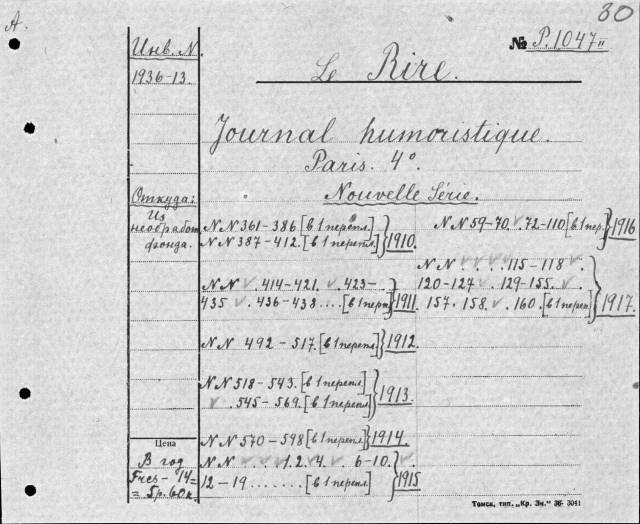 A.
80
Инв. N.
№ P. 1047 II
1936-13.
Le Rire.
Journal humoristique.
Paris. 4°.
Nouvelle Série.
Откуда:
Из
необработ.
фонда.
N N 361-386. [в 1 перепл.]
N N 387-412. [в 1 перепл.] } 1910.
N N ✓. 414-421. ✓. 423-.
435 ✓. 436-438.... [в 1 переп.] } 1911.
N N 492-517. [в 1 перепл.] } 1912.
N N 518-543. [в 1 перепл.]
✓. 545-569. [в 1 перепл.] } 1913.
N N 570-598 [в 1 перепл.] } 1914.
N N ✓ ✓ ✓ 1. 2. ✓ 4. ✓. 6-10. ✓.
12-19........ [в 1 перепл.] } 1915
N N 59-70. ✓. 72-110 [в 1 пер.] } 1916
N N ✓. ✓. ✓. ✓. 115-118 ✓.
120-127 ✓. 129-155. ✓.
157. 158. ✓. 160. [в 1 переп.] } 1917.
Цена
В год
Frcs-14=
= 5 р. 60 к.
Томск, тип. „Кр. Зн." 36- 3041